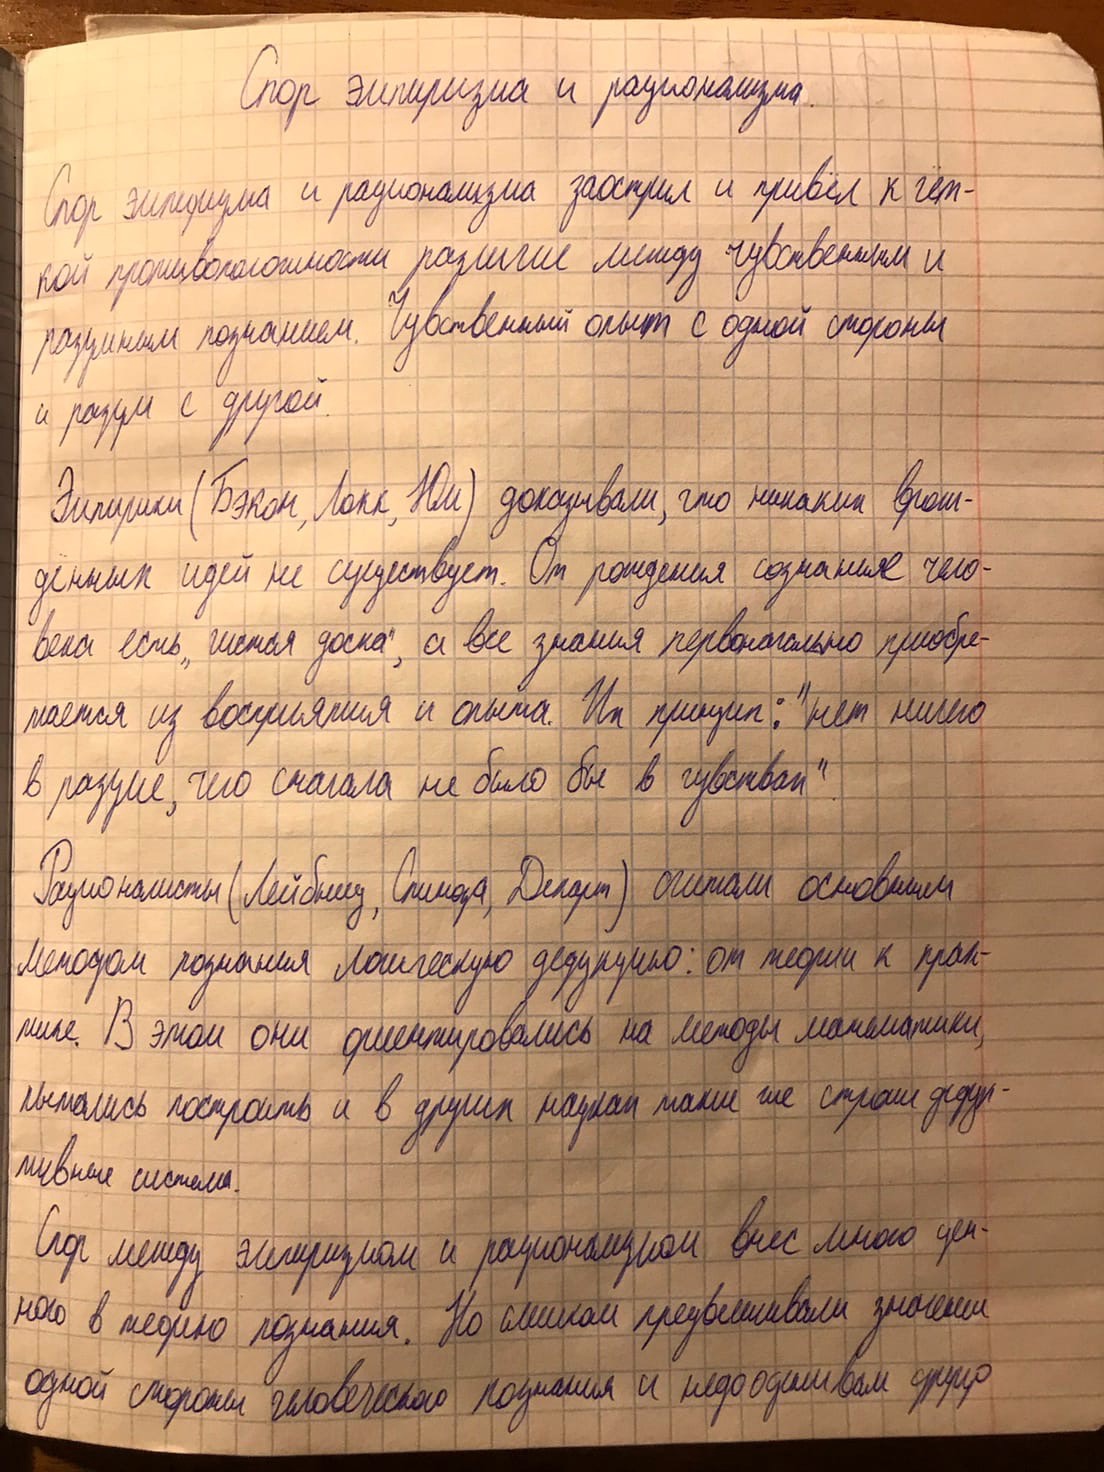 Спор эмпиризма и рационализма.
Спор эмпиризма и рационализма заострил и привёл к чёт-
кой противоположности различие между чувственным и
разумным познанием. Чувственный опыт с одной стороны
и разум с другой.
Эмпирики (Бэкон, Локк, Юм) доказывали, что никаких врож-
дённых идей не существует. От рождения сознание чело-
века есть „чистая доска", а все знания первоначально приобре-
тается из восприятия и опыта. Их принцип: "нет ничего
в разуме, чего сначала не было бы в чувствах"
Рационалисты (Лейбниц, Спиноза, Декарт) считали основным
методом познания логическую дедукцию: от теории к прак-
тике. В этом они ориентировались на методы математики,
пытались построить и в других науках такие же строгие дедук-
тивные системы.
Спор между эмпиризмом и рационализмом внёс много цен-
ного в теорию познания. Но слишком преувеличивали значение
одной стороны человеческого познания и недооценивали другую